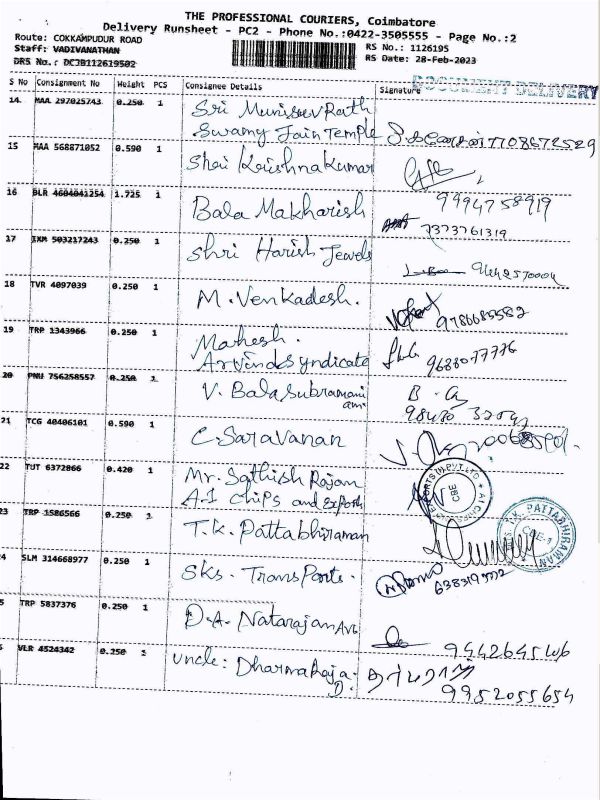 THE PROFESSIONAL COURIERS, Coimbatore
Delivery Runsheet - PC2 - Phone No.:0422-3505555 - Page No.:2
Route: COKKAMPUDUR ROAD
Staff: VADIVANATHAN
DRS No.: DCJB112619502
RS No.: 1126195
RS Date: 28-Feb-2023
DOCUMENT DELIVERY
S No Consignment No Weight PCS Consignee Details Signature
14. MAA 297025743 0.250 1 Sri Munisuv Rath
Swamy Jain Temple 7708672529
15 MAA 568871052 0.590 1 Shri Krishna Kumar
9994758919
16 BLR 4604041254 1.725 1 Bala Makharish 7373761319
17 IXM 503217243 0.250 1 Shri Harish Jewels
18 TVR 4097039 0.250 1 M. Venkadesh. 9786685582
19 TRP 1343966 0.250 1 Mahesh.
Arvind Syndicate 9688077776
20 PNU 756258557 0.250 1 V. Bala Subramani
am.
21 TCG 40406101 0.590 1 C. Saravanan
22 TUT 6372866 0.420 1 Mr. Sathish Rajan
A1 Chips and Exports
23 TRP 1586566 0.250 1 T.K. Pattabhiraman
T.K. PATTABHIRAMAN
CBE-1
4 SLM 314668977 0.250 1 SKS. Trans Ports.
5 TRP 5837376 0.250 1 D.A. Natarajan Avl
9442645406
VLR 4524342 0.250 1 Uncle: Dharmaraja. தர்மராஜ்
D. 9952055654